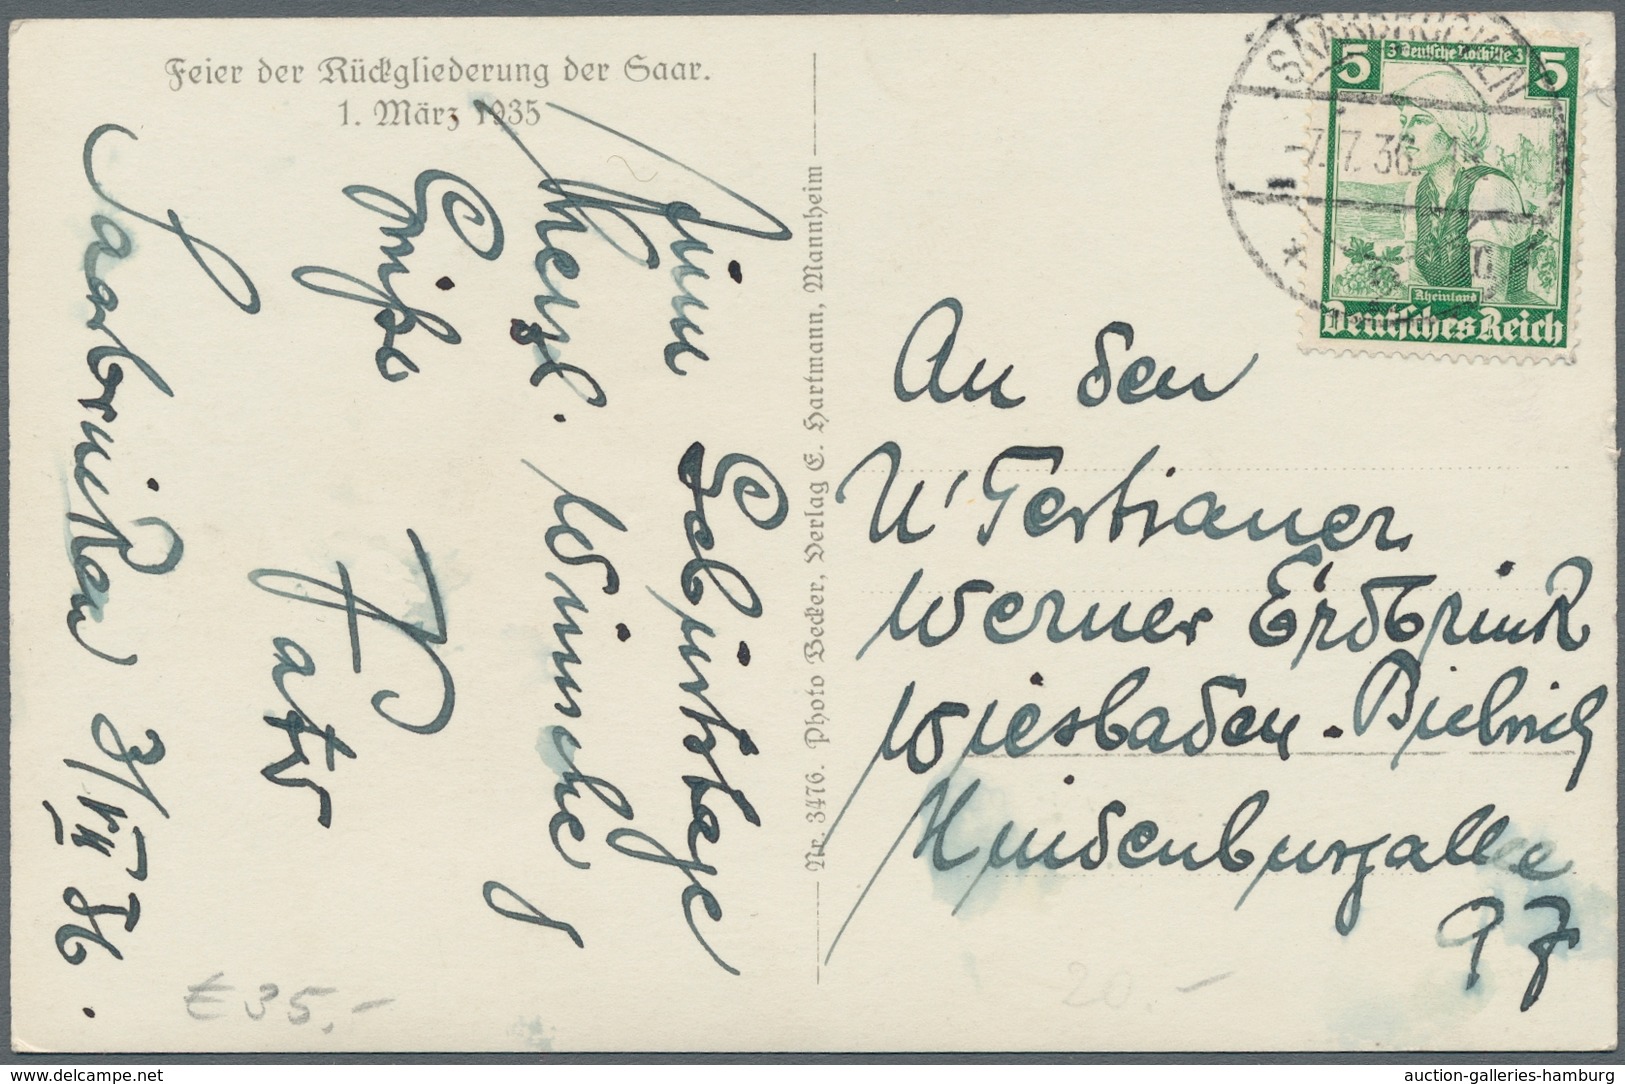 Feier der Rückgliederung der Saar.
1. März 1935
Zum Geburtstage
herzl. Wünsche
Grüße
Vater
Saarbrücken 3/VII 36.
Nr. 3476. Photo Becker, Verlag E. Hartmann, Mannheim
SAARBRÜCKEN
-7.7.36
5 3 Deutsche Nothilfe 3 5
Rheinland
Deutsches Reich
An den
U'Tertianer
Werner Erdbrink
Wiesbaden-Biebrich
Hindenburgallee
97
€ 35,-
20.-
www.delcampe.net
auction-galleries-hamburg